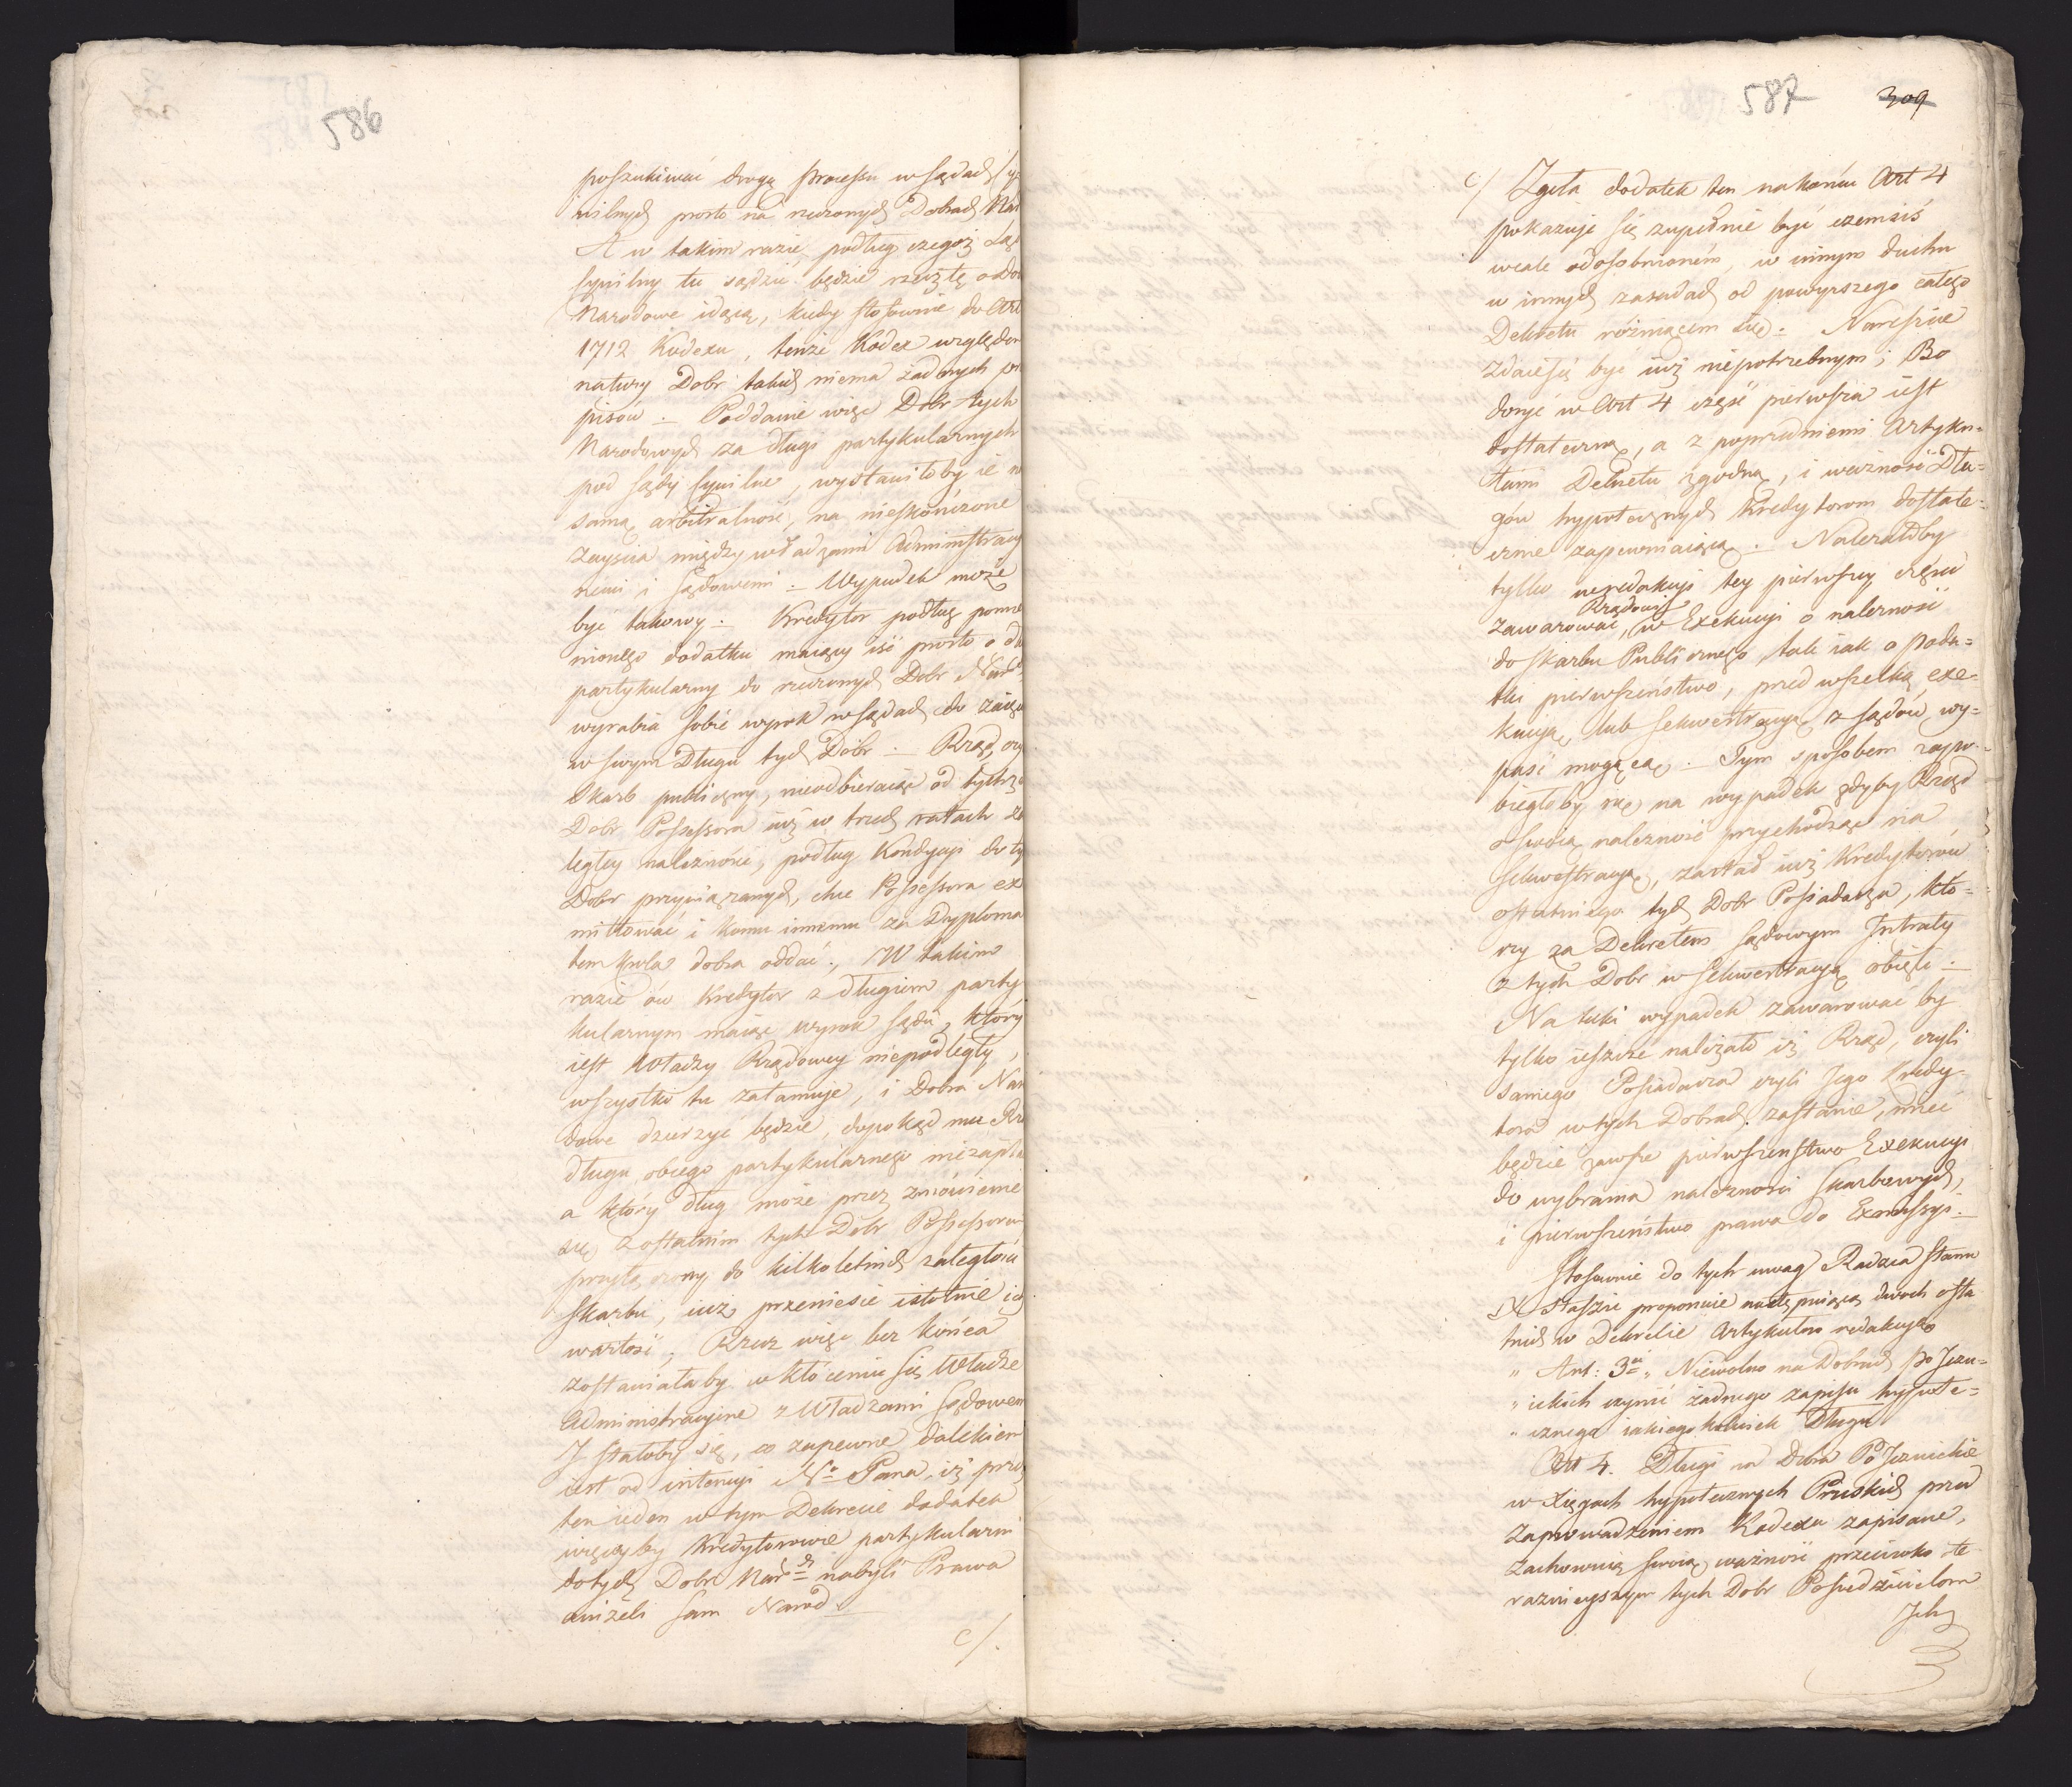 586
poszukiwać drogą processu w sądach Cy
wilnych prosto na rzeczonych Dobrach Nar
A w takim razie, podług czegoż Sąd
Cywilny tu sądzić będzie rzecz tę o Dob
Narodowe idącą, kiedy stosownie do Art
1712 Kodexu, tenże Kodex względem
natury Dobr takich niema żadnych prze
pisów. – Poddanie więc Dobr tych
Narodowych za długi partykularnych
pod sądy Cywilne, wystawiłoby ie na
samą arbitralność, na nieskończone
zayścia między władzami Administracyi
nemi i Sądowemi. – Wypadek może
być takowy. – Kredytor podług pomie
nionego dodatku maiący iść prosto o dług
partykularny do rzeczonych Dobr Nar
wyrabia sobie wyrok w sądach do zaięcia
w swym Długu tych Dobr. – Rząd, czy
Skarb publiczny, nieodbieraiąc od tychże
Dobr Possessora iuż w trzech ratach za
ległey należności, podług Kondycyi do ty
Dobr przywiązanych, chce Possessora ex
mittować i komu innemu za Dyploma
tem Króla dobra oddać., W takim
razie ów Kredytor z długiem party
kularnym maiąc wyrok sądu, który
iest Władzy Rządowey niepodległy,
wszystko tu zatamuje, i Dobra Naro
dowe dzierzyć będzie, dopokąd mu Rz
długu, obcego partykularnego niezapła
a który dług może przez zmówienie
się z ostatnim tych Dobr Possessorem
przyłączony do kilkoletnich zaległości
Skarbu, iuż przeniesie istotnie ich
wartość; Rzecz więc bez końca
zostawiałaby w kłóceniu się Władze
Administracyine z Władzami Sądowem
J stałoby się, co zapewne dalekiem
iest od intencyi No Pana, iż prze
ten ieden w tym Dekrecie dodatek
więceyby Kredytorowie partykularni
do tych Dobr Narch nabyli Prawa
aniżeli sam Naród.
c/.
587
309
c/ Zgoła dodatek ten na końcu Art 4
pokazuje się zupełnie być czemsiś
wcale odosobnionem, w innym duchu
w innych zasadach od powyższego całego
Dekretu różniącem się. Nareszcie
Zdaie się być iuż niepotrzebnym; Bo
dosyć w Art 4 część pierwsza iest
dostateczną, a z poprzedniemi Artyku=
łami Dekretu zgodną, i ważność Dłu=
gów hypotecznych Kredytorom dostate=
cznie zapewniaiącą. – Należałoby
tylko w redakcyi tey pierwszey części
Rządowey
zawarować, w Exekucyi o należność
do Skarbu Publicznego, tak iak o Poda=
tki pierwszeństwo, przed wszelką exe=
kucyą, lub Sekwestracyą z Sądów wy=
paść mogącą. – Tym sposobem zapo=
biegłoby się na wypadek gdyby Rząd
o swoią należność przychodząc na
Sekwestracyą, zastał iuż Kredytorów
ostatniego tych Dobr Posiadacza, któ=
rzy za Dekretem Sądowym Intraty
z tych Dobr w Sekwestracyą obięli. –
Na taki wypadek zawarować by
tylko ieszcze należało iż Rząd, czyli
samego Posiadacza czyli Jego Kredy=
tora w tych Dobrach zastanie, mieć
będzie zawsze pierwszeństwo Exekucyi
do wybrania należności Skarbowych,
i pierwszeństwo prawa do Exmissyi. –
Stosownie do tych uwag Radzca Stanu
X Staszic proponuie następuiącą dwoch osta
tnich w Dekrecie Artykułow redakcyą
„ Art: 3ci „ Niewolno na Dobrach Po Jezu=
„ ickich czynić żadnego zapisu hypote=
„ cznego iakiegokolwiek Długu
Art 4. Długi na Dobra Po Jezuickie
w Xięgach hypotecznych Pruskich przed
Zaprowadzeniem Kodexu zapisane,
zachowuią swoią ważność przeciwko te
raznieyszym tych Dobr Posiedzicielom
Jch